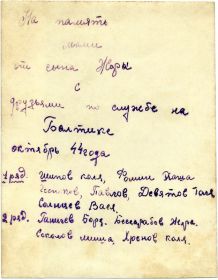 На память
маме
от сына Жоры
с
друзьями по службе на
Балтике
октябрь 44 года
1 ряд. Шипов Коля, Фомин Паша
Павлов, Девятов Толя
Вася.
2 ряд. Борд. Бессарабов Жора.
Соколов Миша Хренов Коля.